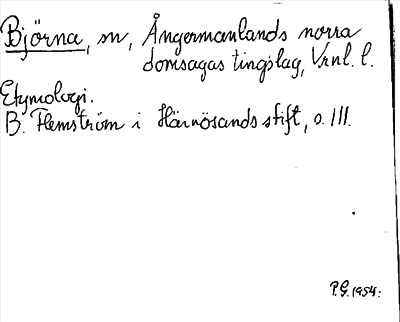 Björna, sn, Ångermanlands norra
domsagas tingslag, Vrnl. l.
Etymologi.
B. Flemström i Härnösands stift, o. 111.
P.G. 1954.